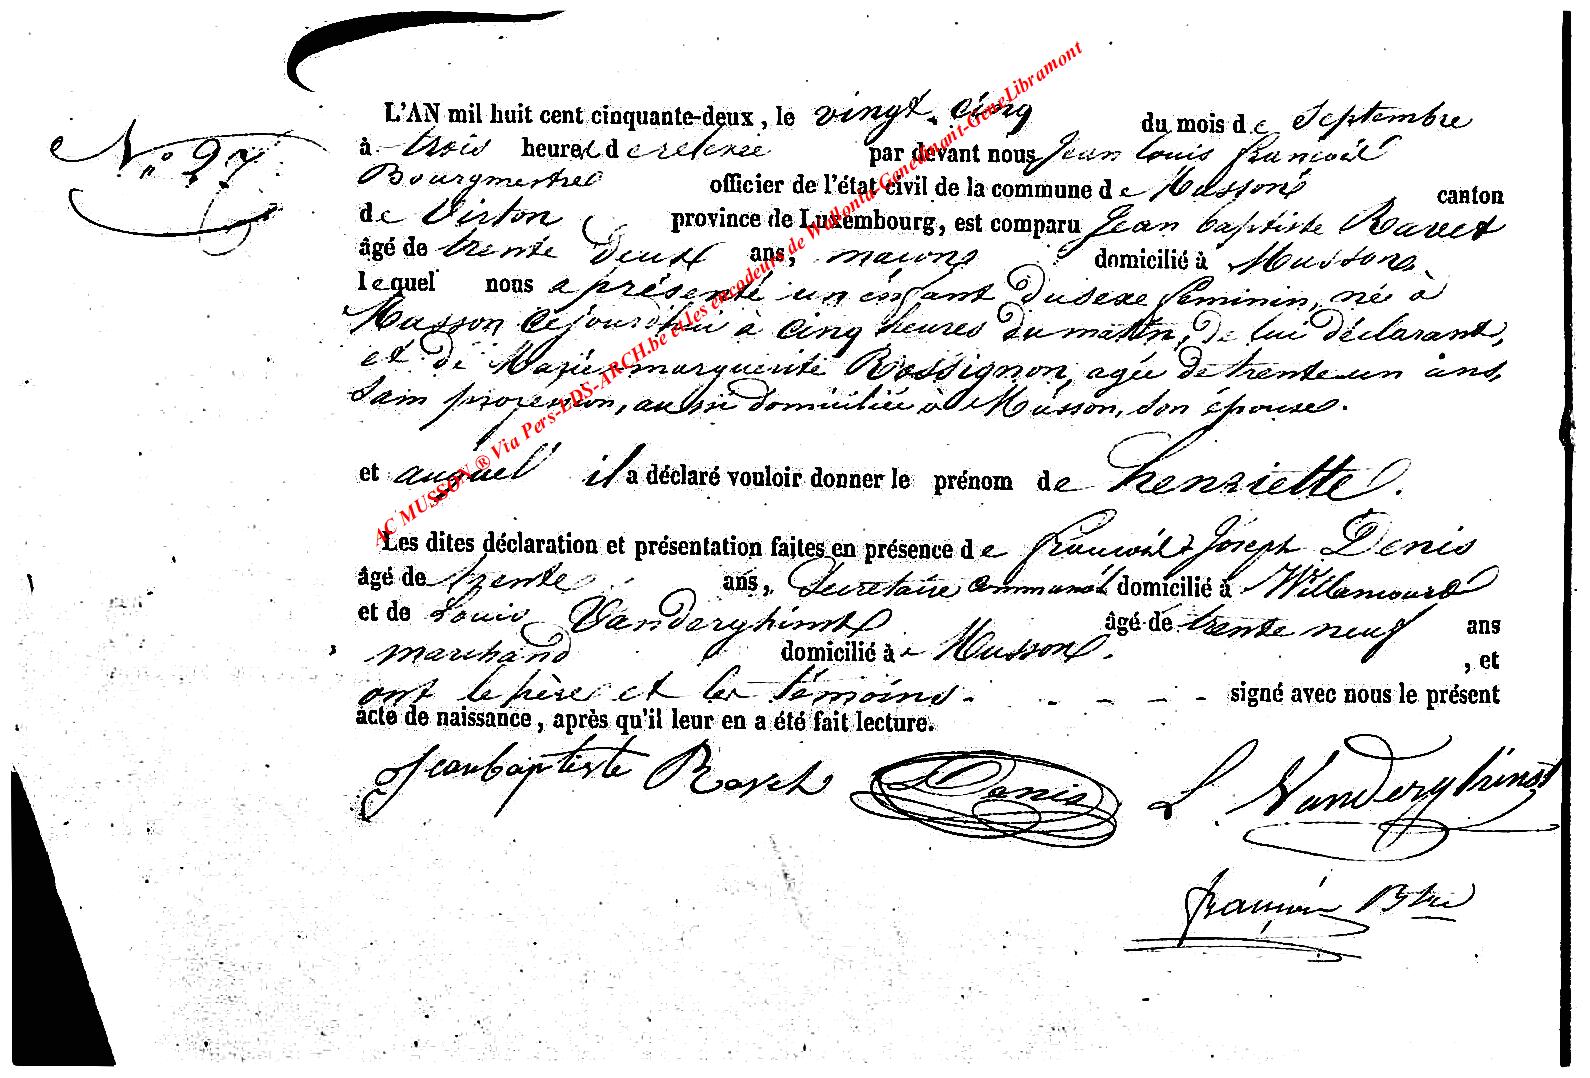 L'AN mil huit cent cinquante-deux, le vingt-cinq du mois de Septembre
N° 27
à trois heures de relevée par devant nous Jean Louis François
Bourgmestre officier de l'état civil de la commune de Musson canton
de Virton province de Luxembourg, est comparu Jean Baptiste Ravet
âgé de trente deux ans, maçon domicilié à Musson
lequel nous a présenté un enfant du sexe féminin, née à
Musson cejourd'hui à cinq heures du matin, de lui déclarant,
et de Marie marguerite Rossignon, agée de trente un ans,
Sans profession, aussi domiciliée à Musson, son épouse.
et auquel il a déclaré vouloir donner le prénom de henriette.
Les dites déclaration et présentation faites en présence de Joseph Denis
âgé de trente ans, Secretaire communal domicilié à Willancourt
et de Louis Vanderghinst âgé de trente neuf ans
marchand domicilié à Musson.
, et
ont le père et les témoins - - - - signé avec nous le présent
acte de naissance, après qu'il leur en a été fait lecture.
Jean baptiste Ravet Denis L. Vanderghinst
François
AC MUSSON ® Via Pers-LDS-ARCH.be et les encodeurs de Wallonia-Genedinant-GeneLibramont